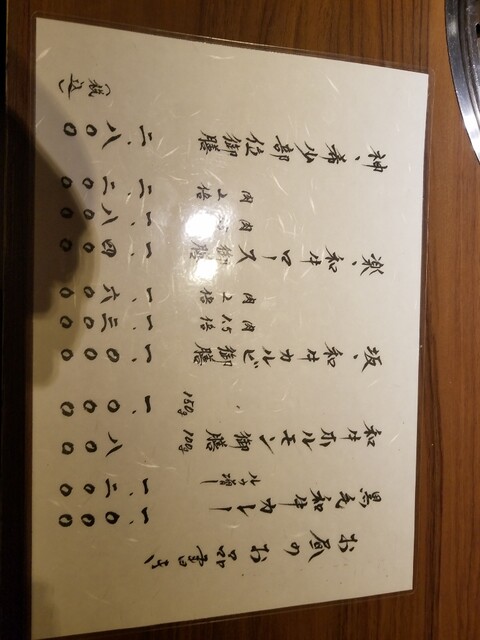 お昼のお品書き
黒毛和牛カレー 一、〇〇〇
ルウ増し 一、二〇〇
和牛ホルモン御膳 100g 八〇〇
150g 一、〇〇〇
坂、和牛カルビ御膳 一、〇〇〇
肉1.5倍 一、三〇〇
肉2倍 一、六〇〇
楽、和牛ロース御膳 一、四〇〇
肉 一、八〇〇
肉2倍 二、二〇〇
神、希少部位御膳 二、八〇〇
(税込)